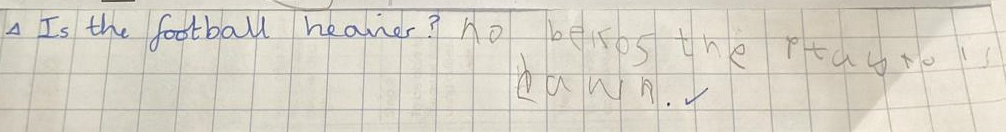 Is the football heavier? no becos the ptato is
dawn.